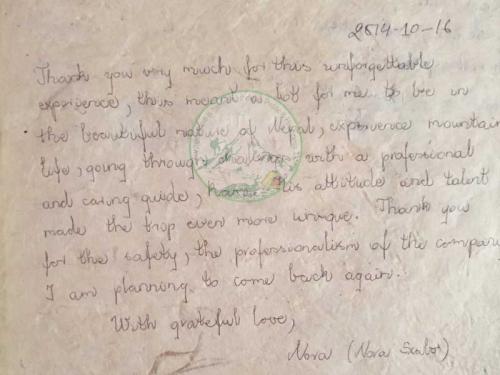 2014-10-16
Thank you very much for this unforgettable
experience, this meant a lot for me to be in
the beautiful nature of Nepal, experience mountain
life, going through challenges with a professional
and caring guide, his attitude and talent
made the trip even more unique. Thank you
for the safety, the professionalism of the company
I am planning to come back again.
With grateful love,
Nora (Nora Szabo)